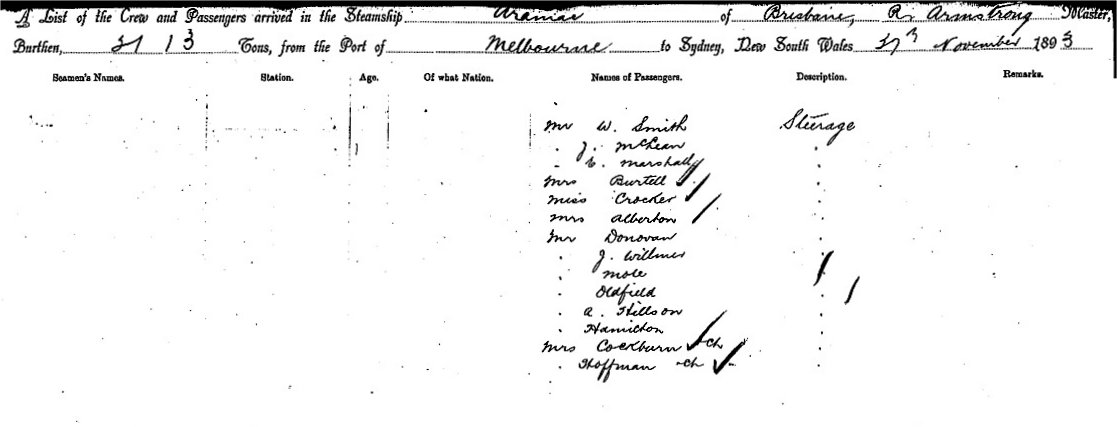 A List of the Crew and Passengers arrived in the Steamship Aramac of Brisbane, R. Armstrong Master,
Burthen, 2113 Tons, from the Port of Melbourne to Sydney, New South Wales 27th November 1893
Seamen's Names. Station. Age. Of what Nation. Names of Passengers. Description. Remarks.
Mr W. Smith Steerage
" J. McLean "
" C. Marshall "
Mrs Burtell "
Miss Crocker "
Mrs Alberton "
Mr Donovan "
" J. Willmer "
" Mole "
" Oldfield "
" A. Hillson "
" Hamilton "
Mrs Cockburn + ch "
" Hoffman + ch "